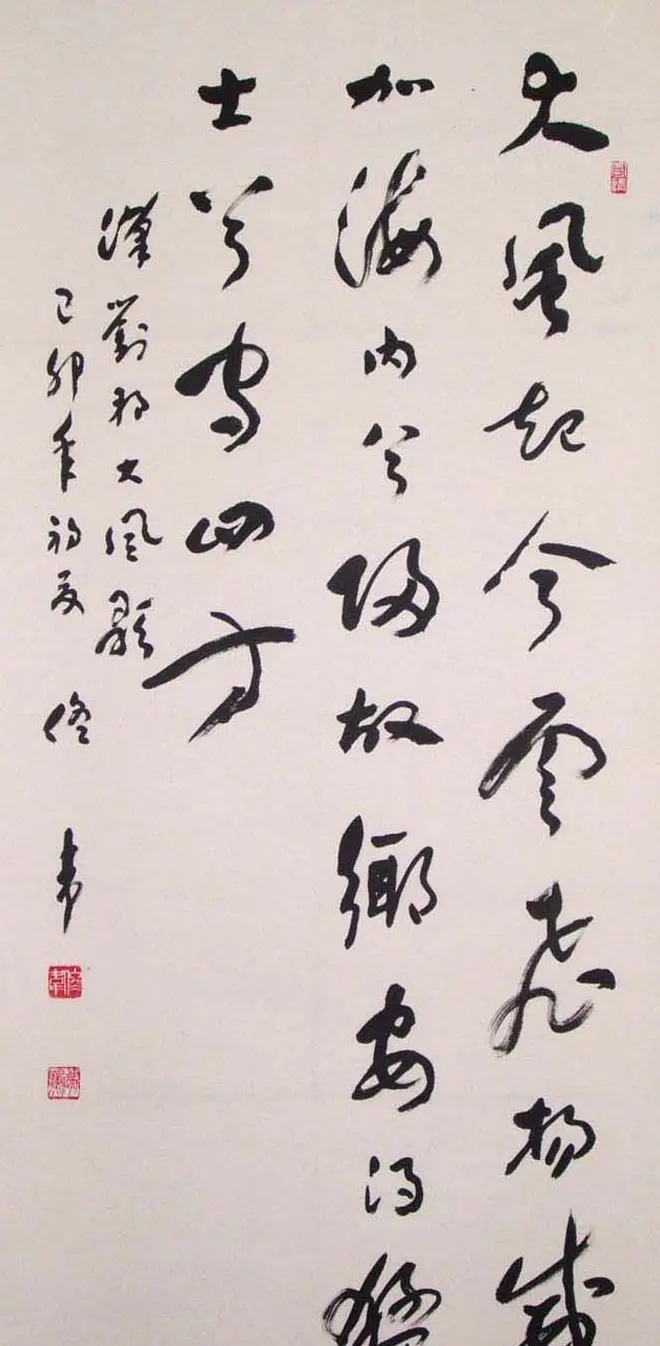 大風起兮雲飛揚威
加海内兮歸故鄉安得猛
士兮守四方
漢劉邦大風歌
己卯年初夏 佟韦